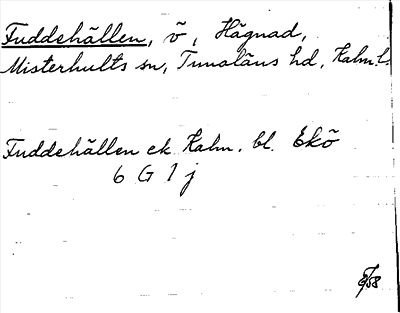 Fuddehällen, ö, Hägnad,
Misterhults sn, Tunaläns hd, Kalm.l.
Fuddehällen ek Kalm. bl. Ekö
6 G 1 j